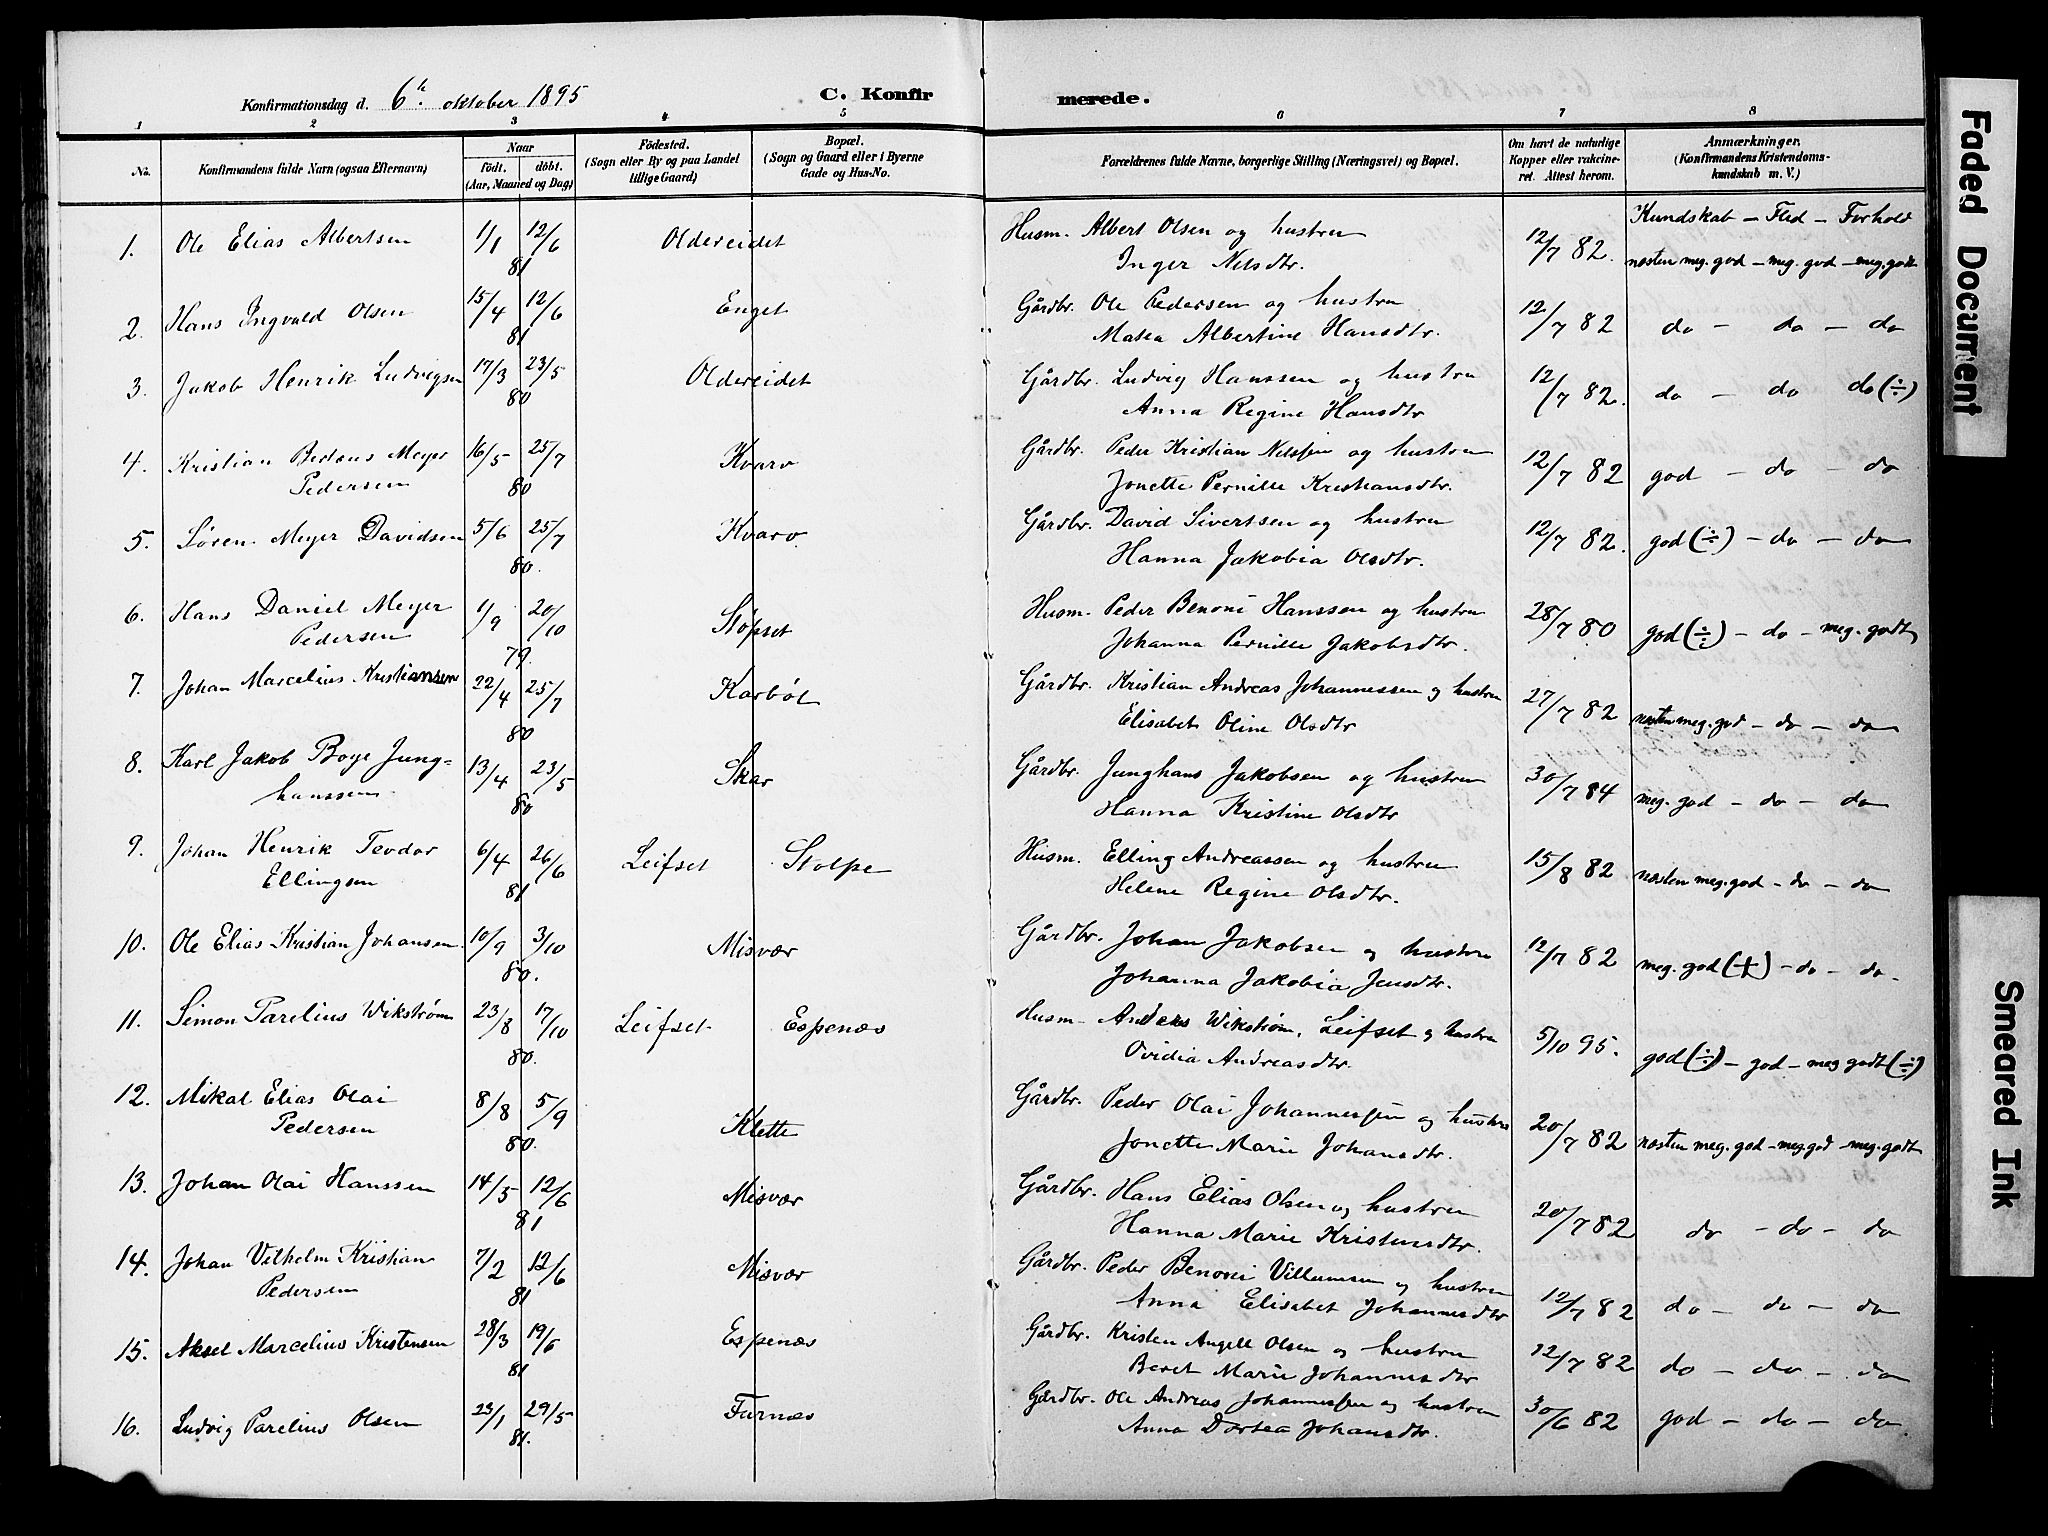 Konfirmationsdag d. 6te. oktober 1895 C. Konfirmerede.
1 2 3 4 5 6 7 8
No. Konfirmandens fulde Navn (ogsaa Efternavn) Naar födt. döbt. (Aar, Maaned og Dag) Födested. (Sogn eller By og paa Landet tillige Gaard) Bopæl. (Sogn og Gaard eller i Byerne Gade og Hus-No. Forældrenes fulde Navne, borgerlige Stilling (Næringsvei) og Bopæl. Om havt de naturlige Kopper eller vakcineret. Attest herom. Anmærkninger. (Konfirmandens Kristendomskundskab m. V.)
Kundskab - Flid - Forhold
1. Ole Elias Albertsen 1/1 12/6 81 Oldereidet Husm. Albert Olsen og hustru 12/7 82. næsten meg. god - meg. god - meg. godt
Inger Nilsdtr.
2. Hans Ingvald Olsen 15/4 12/6 81 Enget Gårdbr. Ole Pedersen og hustru 12/7 82 do - do - do
Matea Albertine Hansdtr.
3. Jakob Henrik Ludvigsen 17/3 23/5 80 Oldereidet Gårdbr. Ludvig Hanssen og hustru 12/7 82. do - do do (÷)
Anna Regine Hansdtr
4. Kristian Meyer 16/5 25/7 80 Kvarv Gårdbr. Peder Kristian Nilssen og hustru 12/7 82 god - do - do
Pedersen Jonette Pernille Kristiansdtr.
5. Søren Meyer Davidsen 5/6 25/7 80. Kvarv. Gårdbr. David Sivertsen og hustru 12/7 82. god (÷) - do - do
Hanna Jakobia Olsdtr.
6. Hans Daniel Meyer 1/9 20/10 79. Stopset Husm. Peder Benoni Hanssen og hustru 28/7 80 god (÷) - do - meg. godt
Pedersen Johanna Pernille Jakobsdtr.
7. Johan Marcelius Kristiansen 22/4 25/7 80 Karbøl Gårdbr. Kristian Andreas Johannessen og hustru 27/7 82 næsten meg. god - do - do
Elisabet Oline Olsdtr
8. Karl Jakob Boye Jung= 13/4 23/5 80 Skar Gårdbr. Junghans Jakobsen og hustru 30/7 84 meg. god - do - do
hanssen Hanna Kristine Olsdtr
9. Johan Henrik Teodor 6/4 26/6 81 Leifset Stolpe Husm. Elling Andreassen og hustru 15/8 82 næsten meg. god - do - do
Ellingsen Helene Regine Olsdtr.
10. Ole Elias Kristian Johansen 10/9 3/10 80. Misvær Gårdbr. Johan Jakobsen og hustru 12/7 82 meg. god (+) - do - do -
Johanna Jakobia Jensdtr.
11. Simon Parelius Wikstrøm 23/8 17/10 80. Leifset Espenæs Husm - Anders Wikstrøm, Leifset og hustru 5/10 95. god (÷) - god - meg godt (÷)
Ovidia Andreasdtr.
12. Mikal Elias Olai 8/8 5/9 80. Klette Gårdbr. Peder Olai Johannessen og hustru 20/7 82 næsten meg. god - meg. god - meg. godt
Pedersen Jonette Marie Johansdtr.
13. Johan Olai Hanssen 14/5 12/6 81 Misvær Gårdbr. Hans Elias Olsen og hustru 20/7 82 do - do - do
Hanna Marie Kristensdtr.
14. Johan Vilhelm Kristian 7/2 12/6 81 Misvær Gårdbr. Peder Benoni Villumsen og hustru 12/7 82 do - do - do
Pedersen Anna Elisabet Johannesdtr
15. Aksel Marcelius Kristensen 28/3 19/6 81 Espenæs Gårdbr. Kristen Angell Olsen og hustru 12/7 82 do - do - do
Beret Marie Johannesdtr
16. Ludvig Parelius Olsen 23/1 29/5 81. Furnæs Gårdbr. Ole Andreas Johannessen og hustru 30/6 82 god - do - do.
Anna Dortea Johansdtr.
Faded Document
Smeared Ink